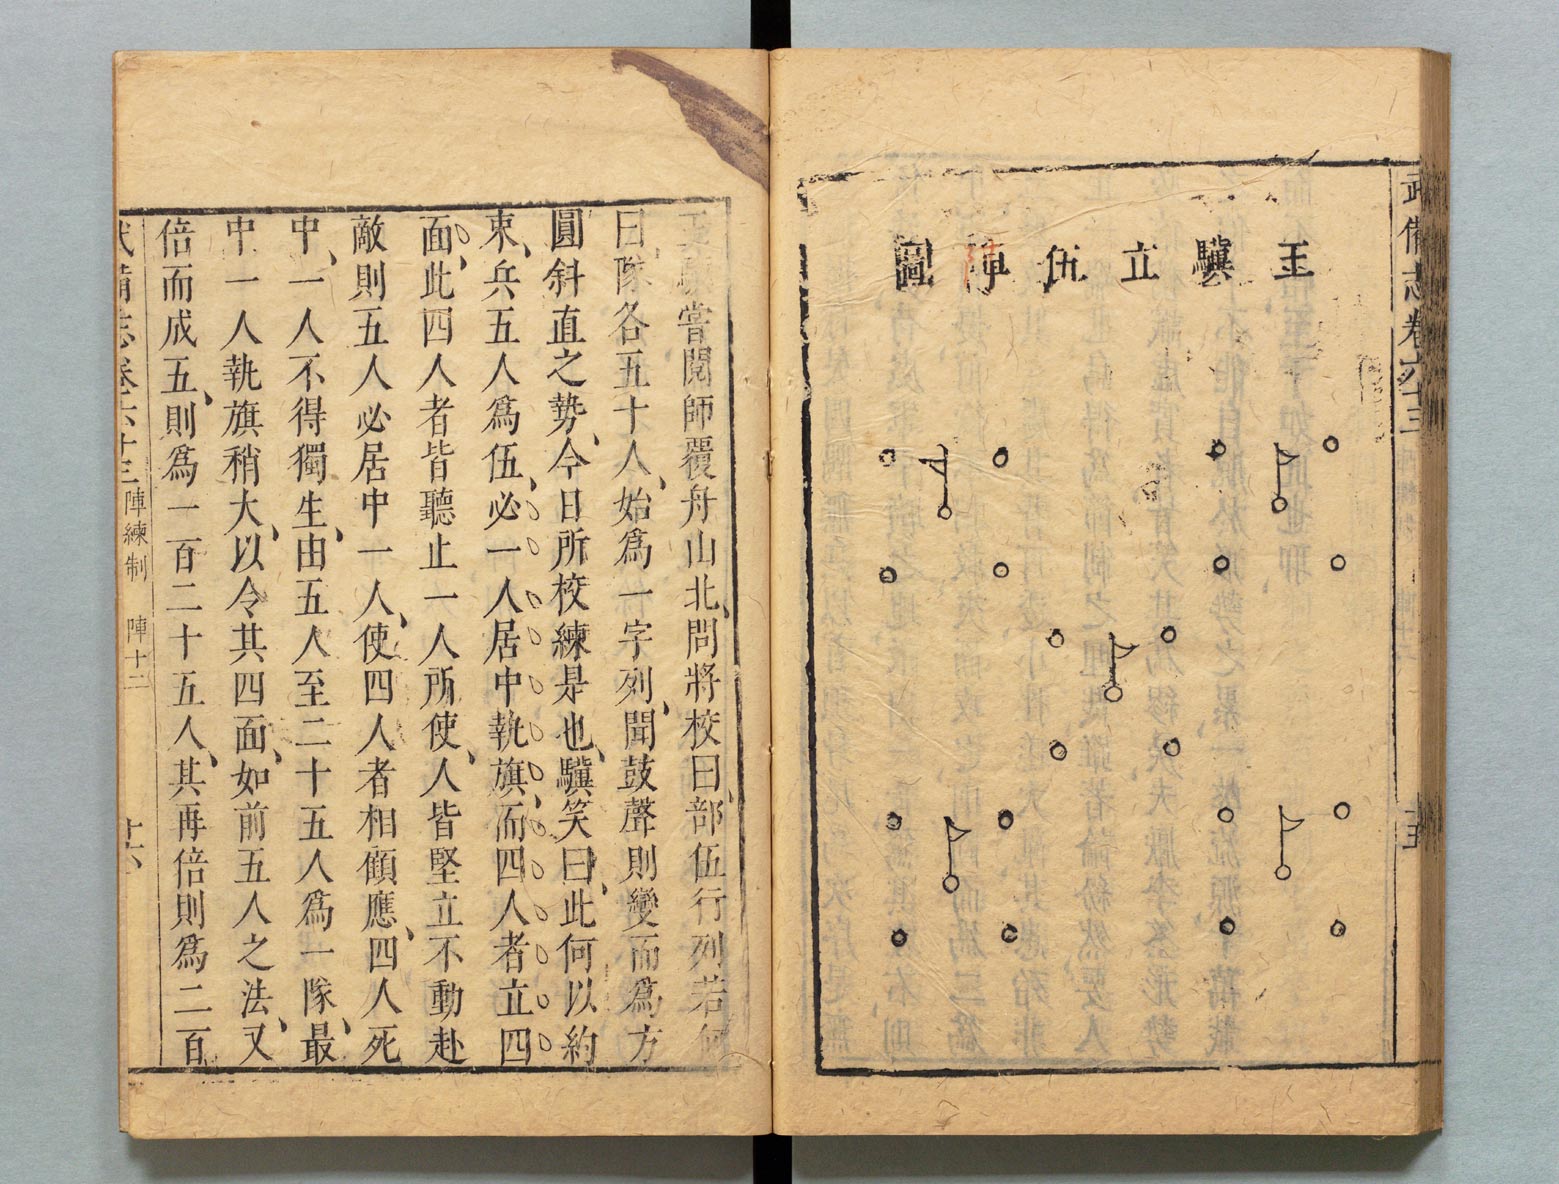 武備志卷六十三 十五
王驥立伍陣圖
王驥嘗閱師覆舟山北、問將校曰、部伍行列若何
曰、隊各五十人、始爲一字列、聞鼓聲則變而爲方
圓斜直之勢、今日所校練是也、驥笑曰、此何以約
束、兵五人爲伍、必一人居中執旗、而四人者立四
面、此四人者皆聽止一人所使、人皆堅立不動赴
敵則五人必居中一人、使四人者相顧應、四人死
中、一人不得獨生、由五人至二十五人爲一隊、最
中一人執旗稍大、以令其四面、如前五人之法、又
倍而成五、則爲一百二十五人、其再倍則爲二百
武備志卷六十三 陣練制 陣十二 十六